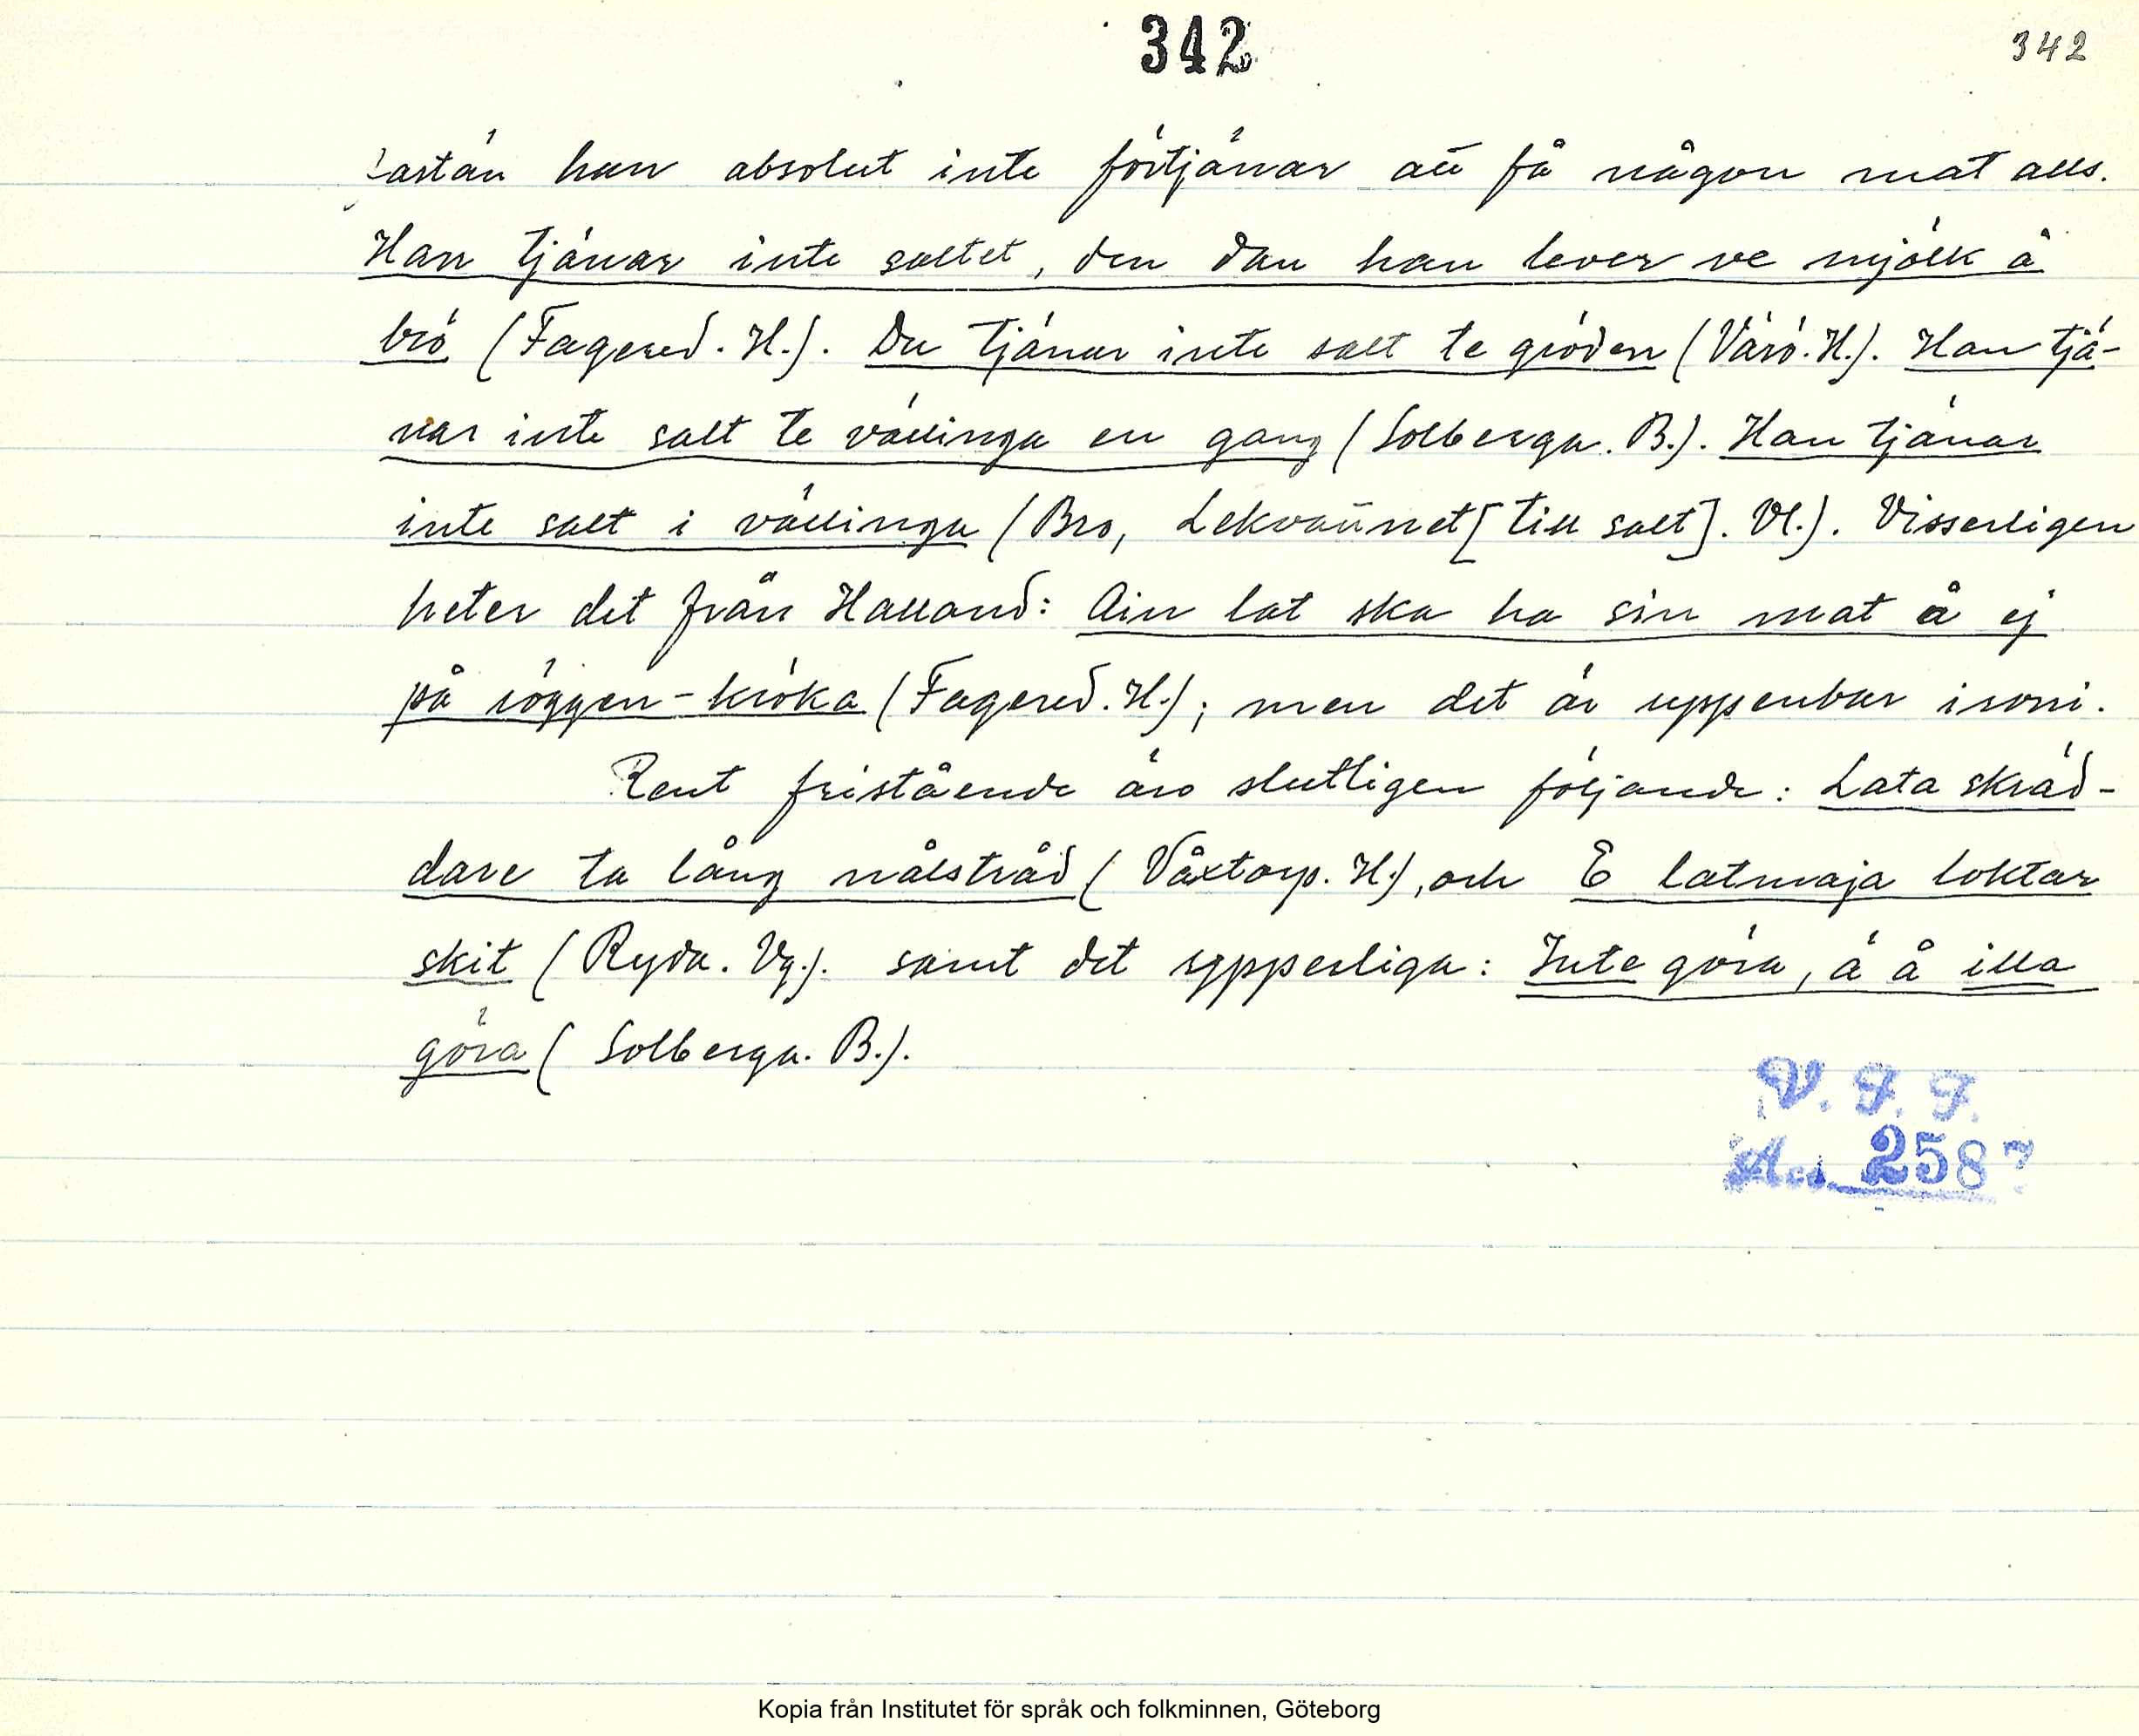 342
342
fastän han absolut inte förtjänar att få någon mat alls.
Han tjänar inte saltet, den dan han lever ve mjölk å
brö (Fagered. H.). Du tjänar inte salt te gröden (Värö. H.). Han tjä-
nar inte salt te vällinga en gang (Solberga. B.). Han tjänar
inte salt i vällinga (Bro, Lekvattnet [till salt]. Vl.). Visserligen
heter det från Halland: Ain lat ska ha sin mat å ej
på röggen-kröka (Fagered. H.); men det är uppenbar ironi.
Rent fristående äro slutligen följande: Lata skräd-
dare ta lång nålstråd (Våxtorp. H.), och E latmaja loktar
skit (Ryda. Vg.). samt det ypperliga: Inte göra, ä å illa
göra (Solberga. B.).
V. F. F.
Acc. 2587
Kopia från Institutet för språk och folkminnen, Göteborg